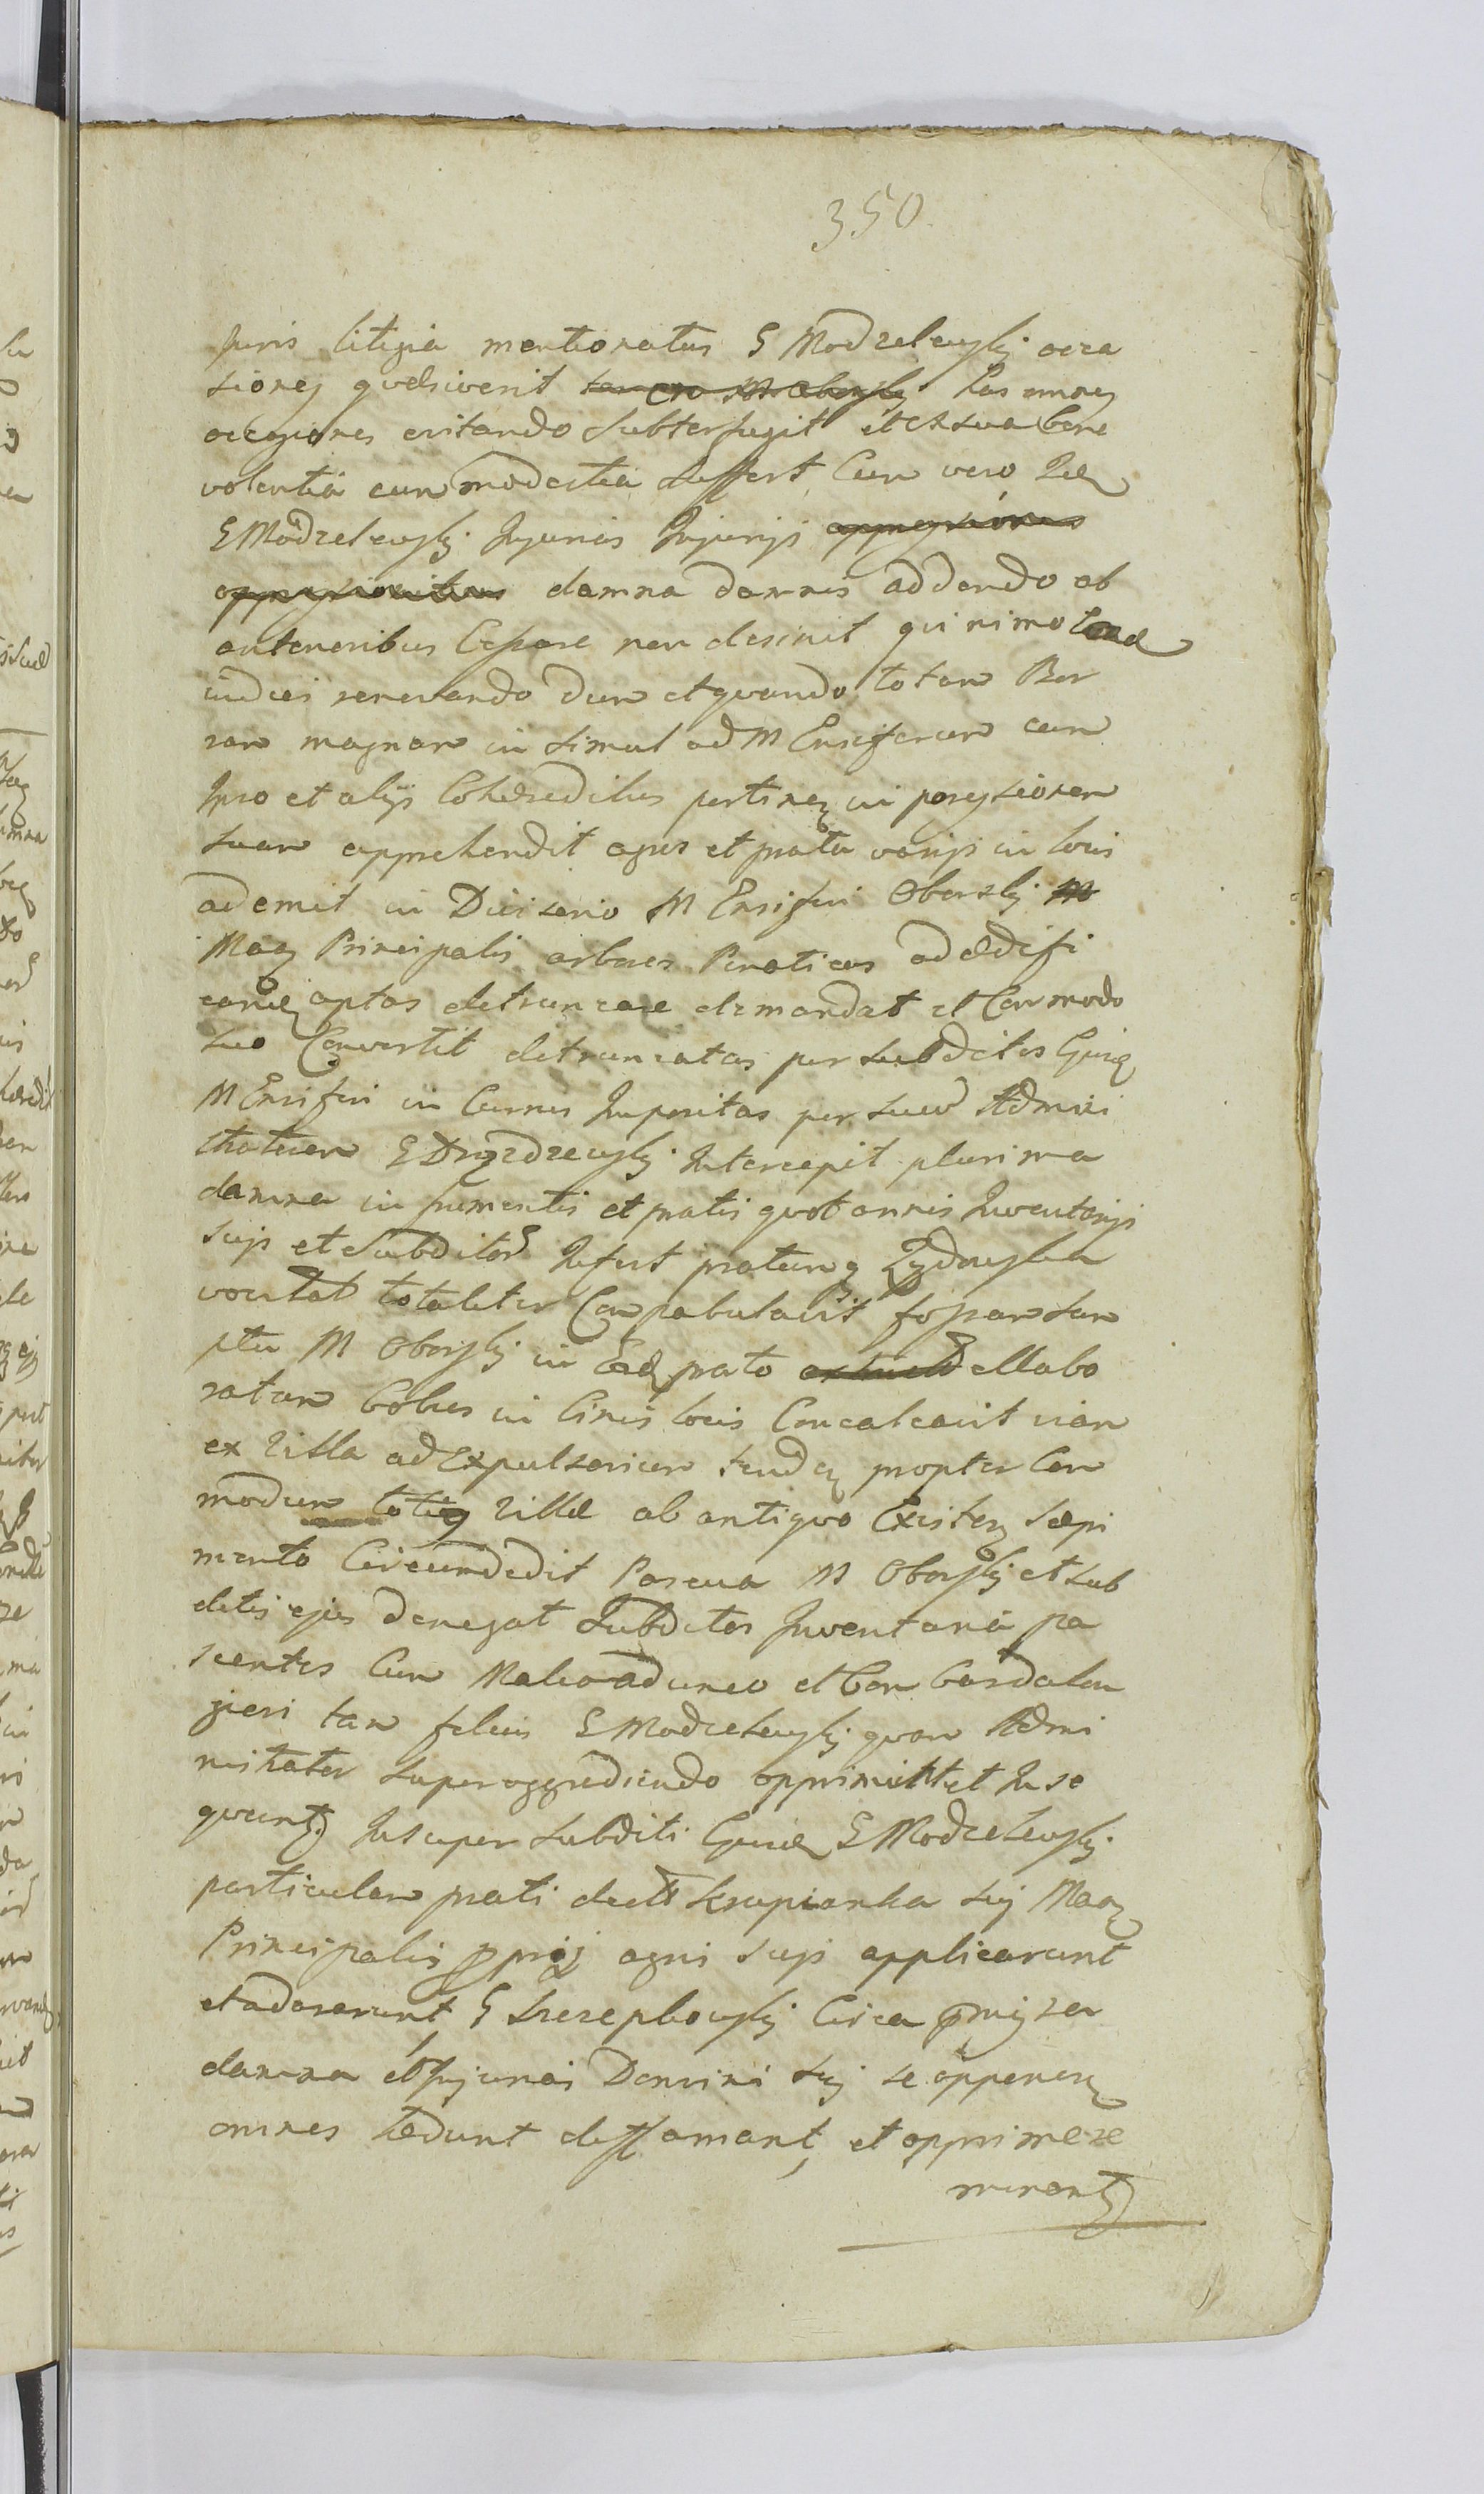 350.
Juris litigia mentionatus G Modzelewskj occa
siones quaesiverit has omnes
occasiones evitando subterfugit et ex sua bene
volentia cum modestia suffert, Cum vero
G Modzelewskj Injurias Injurijs oppressiones
oppressionibus damna damnis addendo ab
anterioribus Cessare non desinit qui nimo
indies renovando dum et quando totam Bor
ram magnam in simul ad M Ensiferum cum
Ipso et alijs Cohaeredibus pertinen in possessionem
suam apprehendit agros et prata varijs in locis
ademit in Diviserio M Ensiferi Oborskj M
Mag Principalis arbores Pinoticas ad aedifi
can aptas detruncare demandat et Commodo
suo Convertit detruncatas per subditos
M Ensiferi in Currus Impositas per suum Admini
stratorem G Drozdzewskj Intercepit plurima
damna in frumentis et pratis quotannis Inventarijs
suis et subditor Infert pratum q Zydowska
vocitat totaliter Compabulavit fossam sum
ptu M Oborskj in Eod prato ellabo
ratam bobus in binis locis Conculcavit viam
ex Villa ad Expulsorium tenden propter Com
modum totius Villae ab antiquo Existen saepi
mento Circumdedit Pascua M Oborskj et sub
ditis ejus denegat subditos Inventaria pa
scentes Cum Malleo adunco et Cum
tam filius G Modzelewskj quam Admi
nistrator superaggrediendo opprimit et Inse
quunt Insuper subditi G Modzelewskj
particulam prati dicti Krupianka suj Mag
Principalis pprij agri suis applicarunt
et adorarunt, G Szczepkowskj Circa pmissa
damna et Injurias Domini suj se opponen
omnes laedunt diffamant, et opprimere
minant